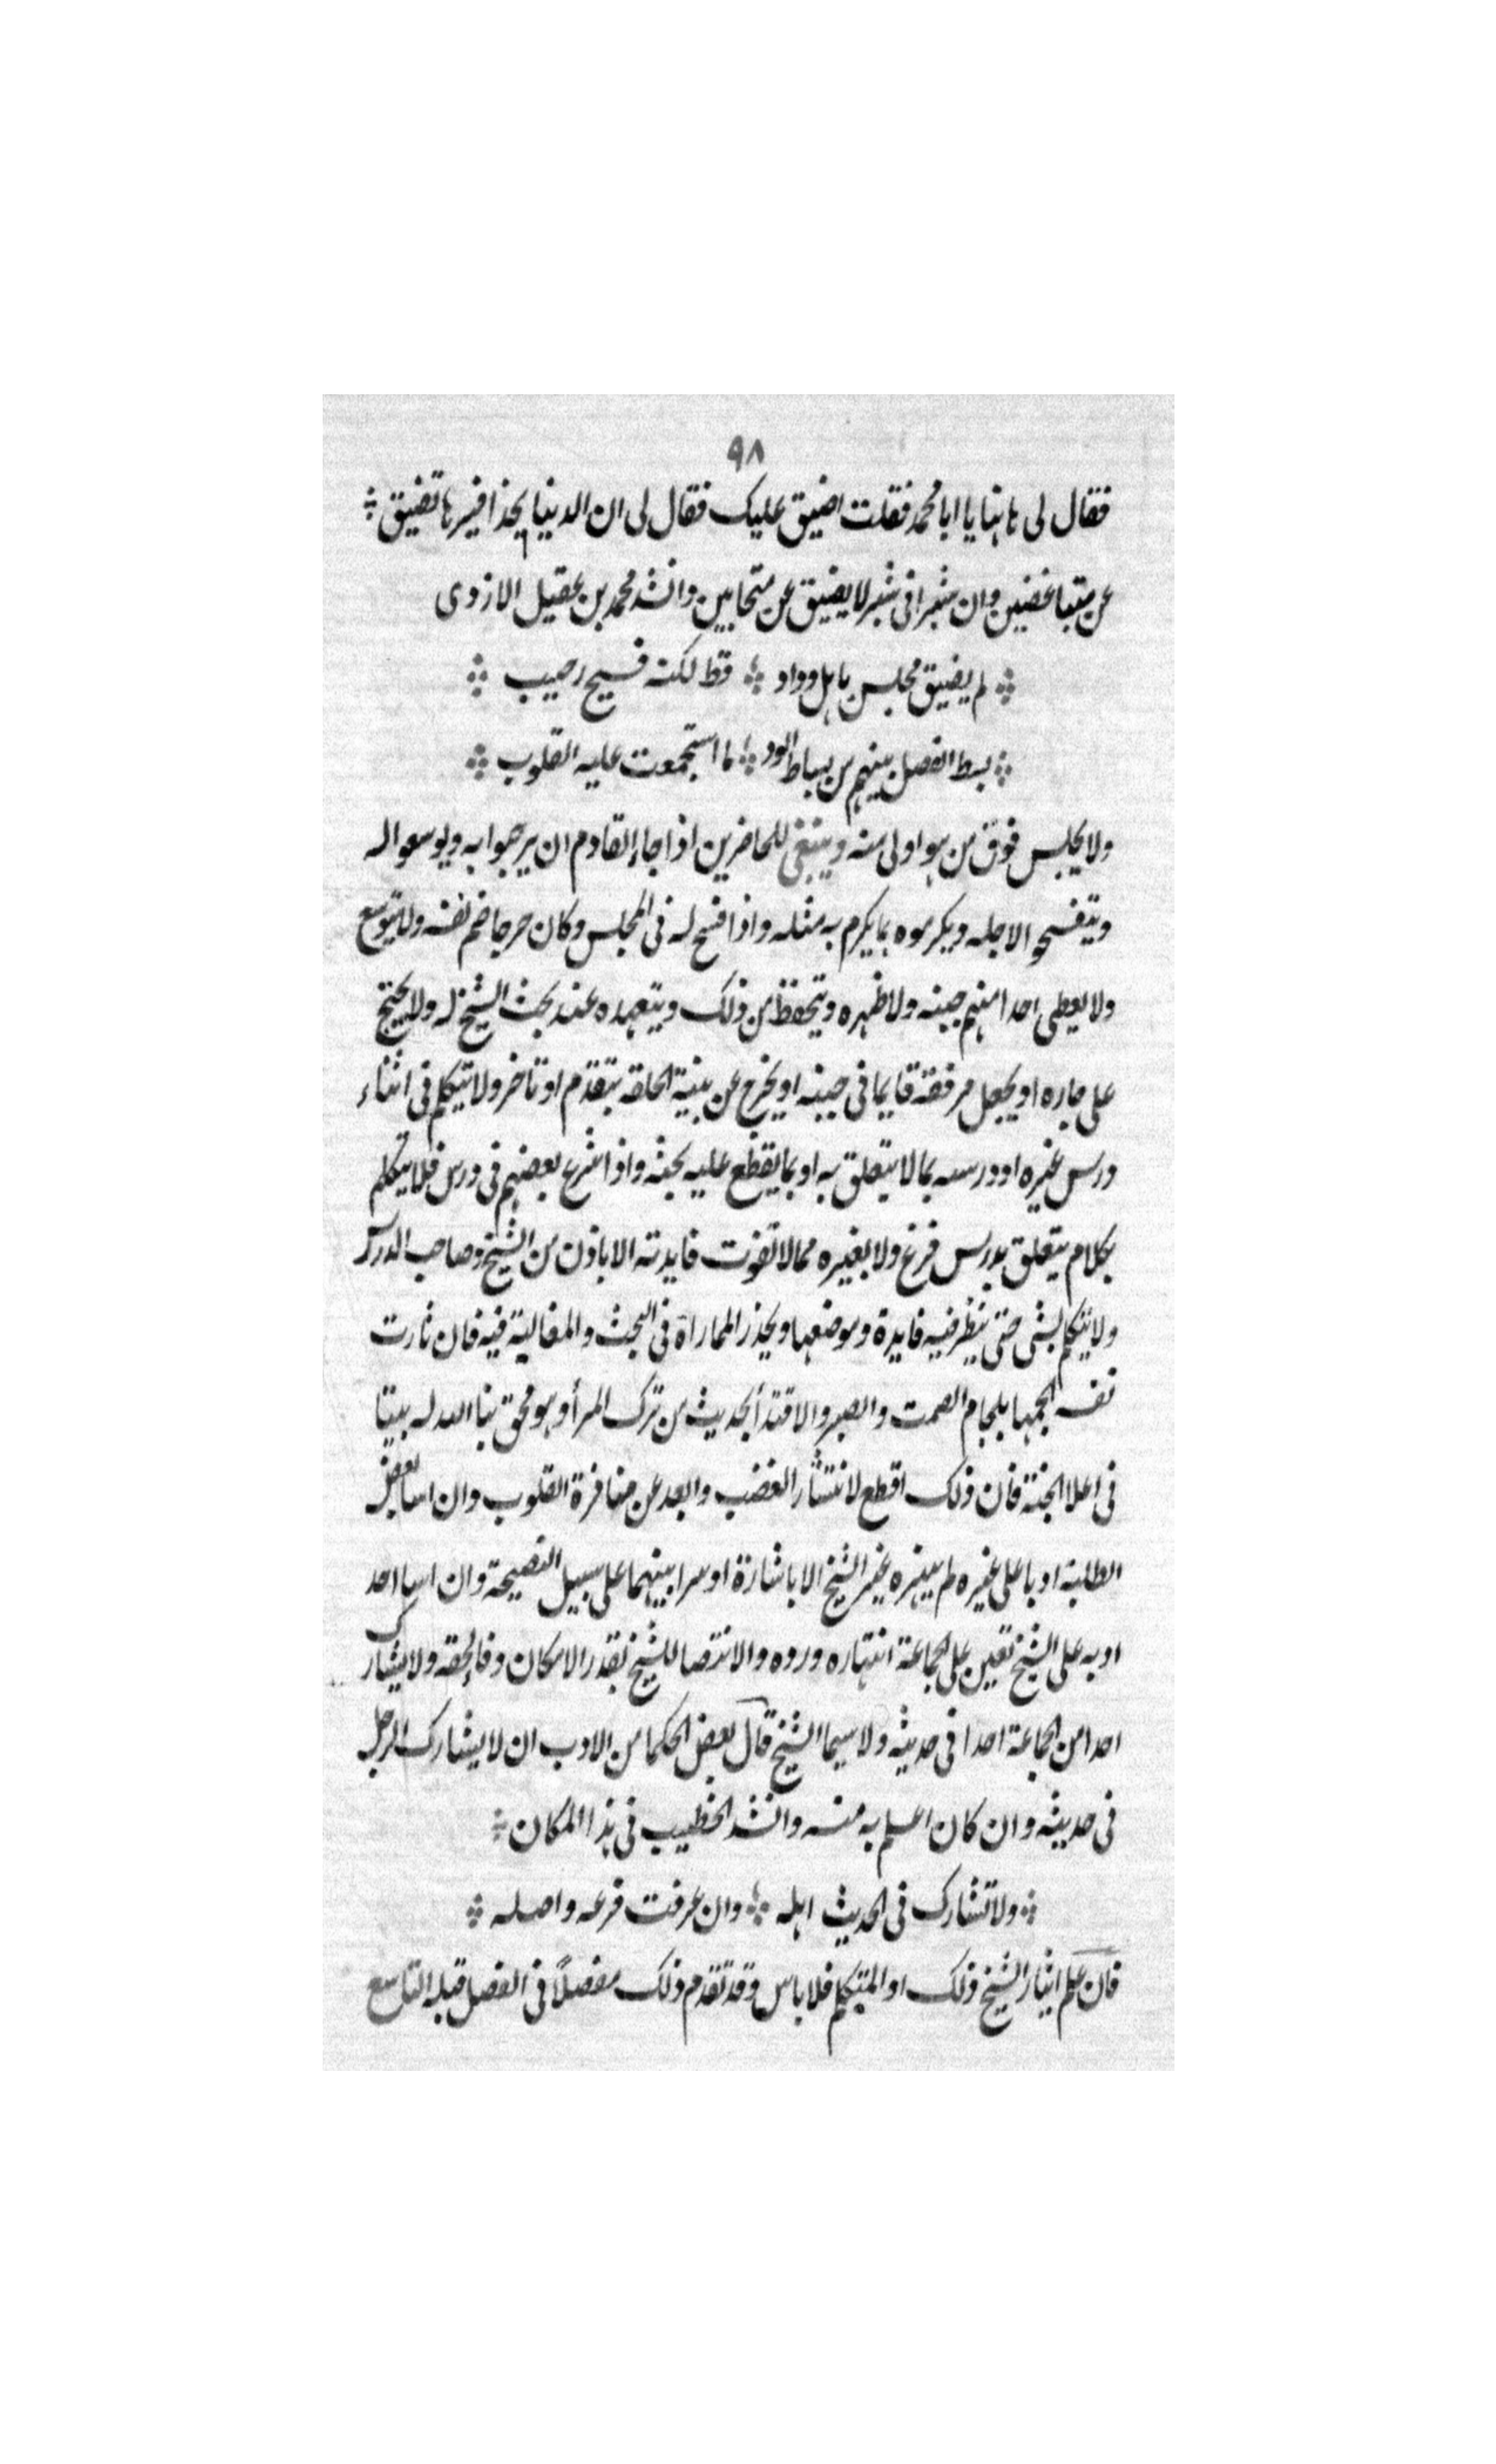 ٩٨
فقال لى هاهنا يا ابا محمد فقلت اضيق عليك فقال لى ان الدنيا بحذافيرها تضيق
عن متباغضين وان شبرا فى شبر لا يضيق عن متحابين وانشد محمد بن عقيل الازدى
لم يضيق مجلس باهل وداد قط لكنه فسيح رحيب
بسط الفضل بينهم من بساط الود لما استجمعت عليه القلوب
ولا يجلس فوق من هو اولى منه وينبغى للحاضرين اذا جاء القادم ان يرحبوا به ويوسعوا له
ويتفسحوا لاجله ويكرموه بما يكرم به مثله واذا فسح له فى المجلس وكان حرجا ضم نفسه ولا يتوسع
ولا يعطى احدا منهم جنبه ولا ظهره ويتحفظ من ذلك ويتعهده عند بحث الشيخ له ولا يجنح
على جاره او يجعل مرفقه قايما فى جنبه او يخرج عن بنية الحلقة بتقدم او تاخر ولا يتكلم فى اثناء
درس غيره او درسه بما لا يتعلق به او بما يقطع عليه بحثه واذا شرع بعضهم فى درس فلا يتكلم
بكلام يتعلق بدرس فرغ ولا بغيره مما لا تفوت فايدته الا باذن من الشيخ وصاحب الدرس
ولا يتكلم بشى حتى ينظر فيه فايدة وموضعها ويحذر المماراة فى البحث والمغالبة فيه فان ثارت
نفسه الجمها بلجام الصمت والصبر والاقتدأ بحديث من ترك المرأ وهو محق بنا الله له بيتا
فى اعلا الجنة فان ذلك اقطع لانتشار الغضب وابعد عن منافرة القلوب وان اسا بعض
الطلبة ادبا على غيره لم ينهره غير الشيخ الا باشارة او سرا بينهما على سبيل النصيحة وان اسا احد
ادبه على الشيخ تعين على الجماعة انتهاره ورده والانتصا للشيخ بقدر الامكان وفاء لحقه ولا يشارك
احد من الجماعة احدا فى حديثه ولا سيما الشيخ قال بعض الحكما من الادب ان لا يشارك الرجل
فى حديثه وان كان اعلم به منه وانشد الخطيب فى هذا المكان
ولا تشارك فى الحديث اهله وان عرفت فرعه واصله
فان علم ايثار الشيخ ذلك او المتكلم فلا باس وقد تقدم ذلك مفصلاً فى الفصل قبله التاسع